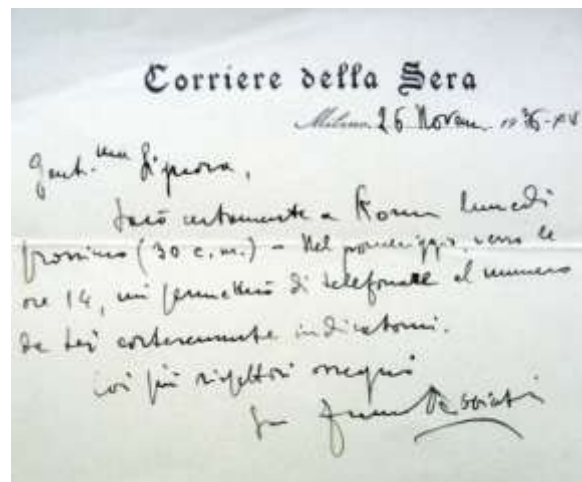 Corriere della Sera
Milano 26 Novem. 1936-XV
Gent.ma Signora,
sarò certamente a Roma lunedì
prossimo (30 c.m.) - Nel pomeriggio, verso le
ore 14, mi permetterò di telefonare al numero
da Lei cortesemente indicatomi.
Coi più rispettosi ossequi